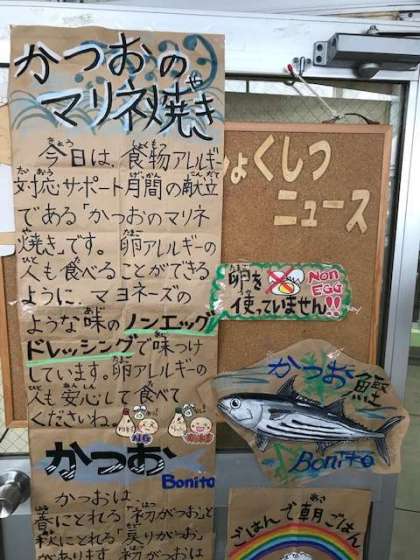 かつおの
マリネ焼き
今日は、食物アレルギー
対応サポート月間の献立
である「かつおのマリネ
焼き」です。卵アレルギーの
人も食べることができる
ように、マヨネーズの
ような味のノンエッグ
ドレッシングで味つけ
しています。卵アレルギーの
人も安心して食べて
くださいね。
かつお
Bonito
かつおは、
春にとれる「初がつお」と
秋にとれる「戻りがつお」
があります。初がつおは
しょくしつ
ニュース
卵を
使っていません!!
NON
EGG
かつお 鰹
Bonito
ごはんで朝ごはん